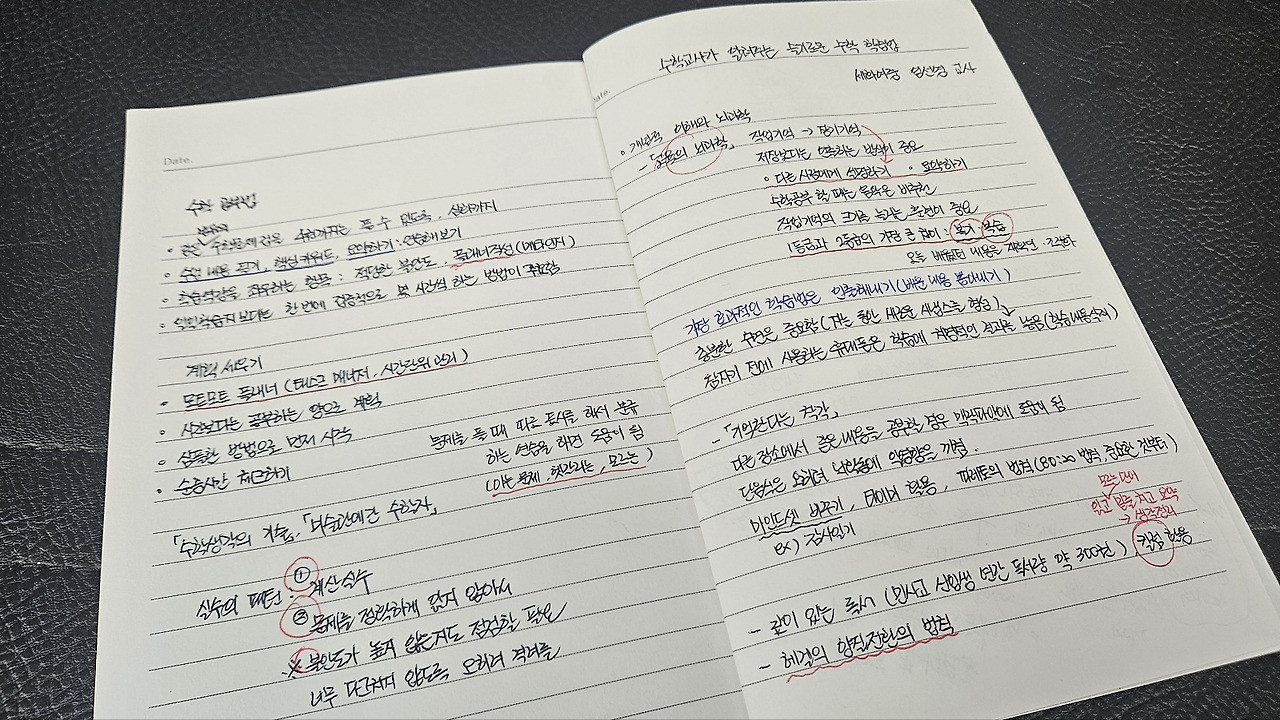 Date.
수학 공부법
• 같은 수학문제집을 수험까지는 풀 수 있도록, 심화까지
• 수업 내용 듣기, 핵심 키워드, 요약하기·연습해보기
• 학습역량을 좌우하는 항목: 적절한 불안도, 플래너작성(메타인지)
• 일일학습지보다는 한번에 집중적으로 몇 시간씩 하는 방법이 중요함
계획 세우기
• 모트모트 플래너 (태스크 매니저, 시간단위 관리)
• 시간보다는 공부하는 양으로 계획
• 심플한 방법으로 먼저 시작
• 순공시간 체크하기
문제를 풀 때 따로 표시를 해서 분류
하는 연습을 하면 도움이 됨
(아는 문제, 헷갈리는, 모르는)
「수학생각의 기술」「미술관에 간 수학자」
실수의 패턴: ① 계산실수
② 문제를 정확하게 읽지 않아서
※ 불안도가 높지 않은지도 점검할 필요
너무 다그치지 않도록 오히려 격려를
Date.
수학교사가 알려주는 슬기로운 수학 학습법
세화여중 임선경 교사
• 개념적 이해와 뇌과학
- 「교육의 뇌과학」 작업기억 → 장기기억
저장보다는 인출하는 방식이 중요
• 다른 사람에게 설명하기 • 요약하기
수학공부 할 때는 음악은 비추천
작업기억의 크기를 늘리는 훈련이 중요
1등급과 2등급의 가장 큰 차이: 복기 복습
오늘 배웠던 내용을 재확인·진단
가장 효과적인 학습법은 인출해내기 (배운 내용 뽑아내기)
충분한 수면은 중요함 (자는 동안 새로운 시냅스를 형성)
잠자기 전에 사용하는 휴대폰은 학습에 치명적인 결과를 낳음 (학습내용삭제)
- 「기억한다는 착각」
다른 장소에서 같은 내용을 공부할 경우 맥락파악에 도움이 됨
단음식은 오히려 뇌활동에 악영향을 끼침.
마인드셋 바꾸기, 타이머 활용, 파레토의 법칙 (80:20 법칙, 중요한 것부터)
ex) 감사일기
모르는 단어
읽고 밑줄 치고 요약
→ 생각정리
- 깊이 있는 독서 (민사고 신입생 연간 독서량 약 300권), 키워드 활용
- 헤겔의 양질전환의 법칙